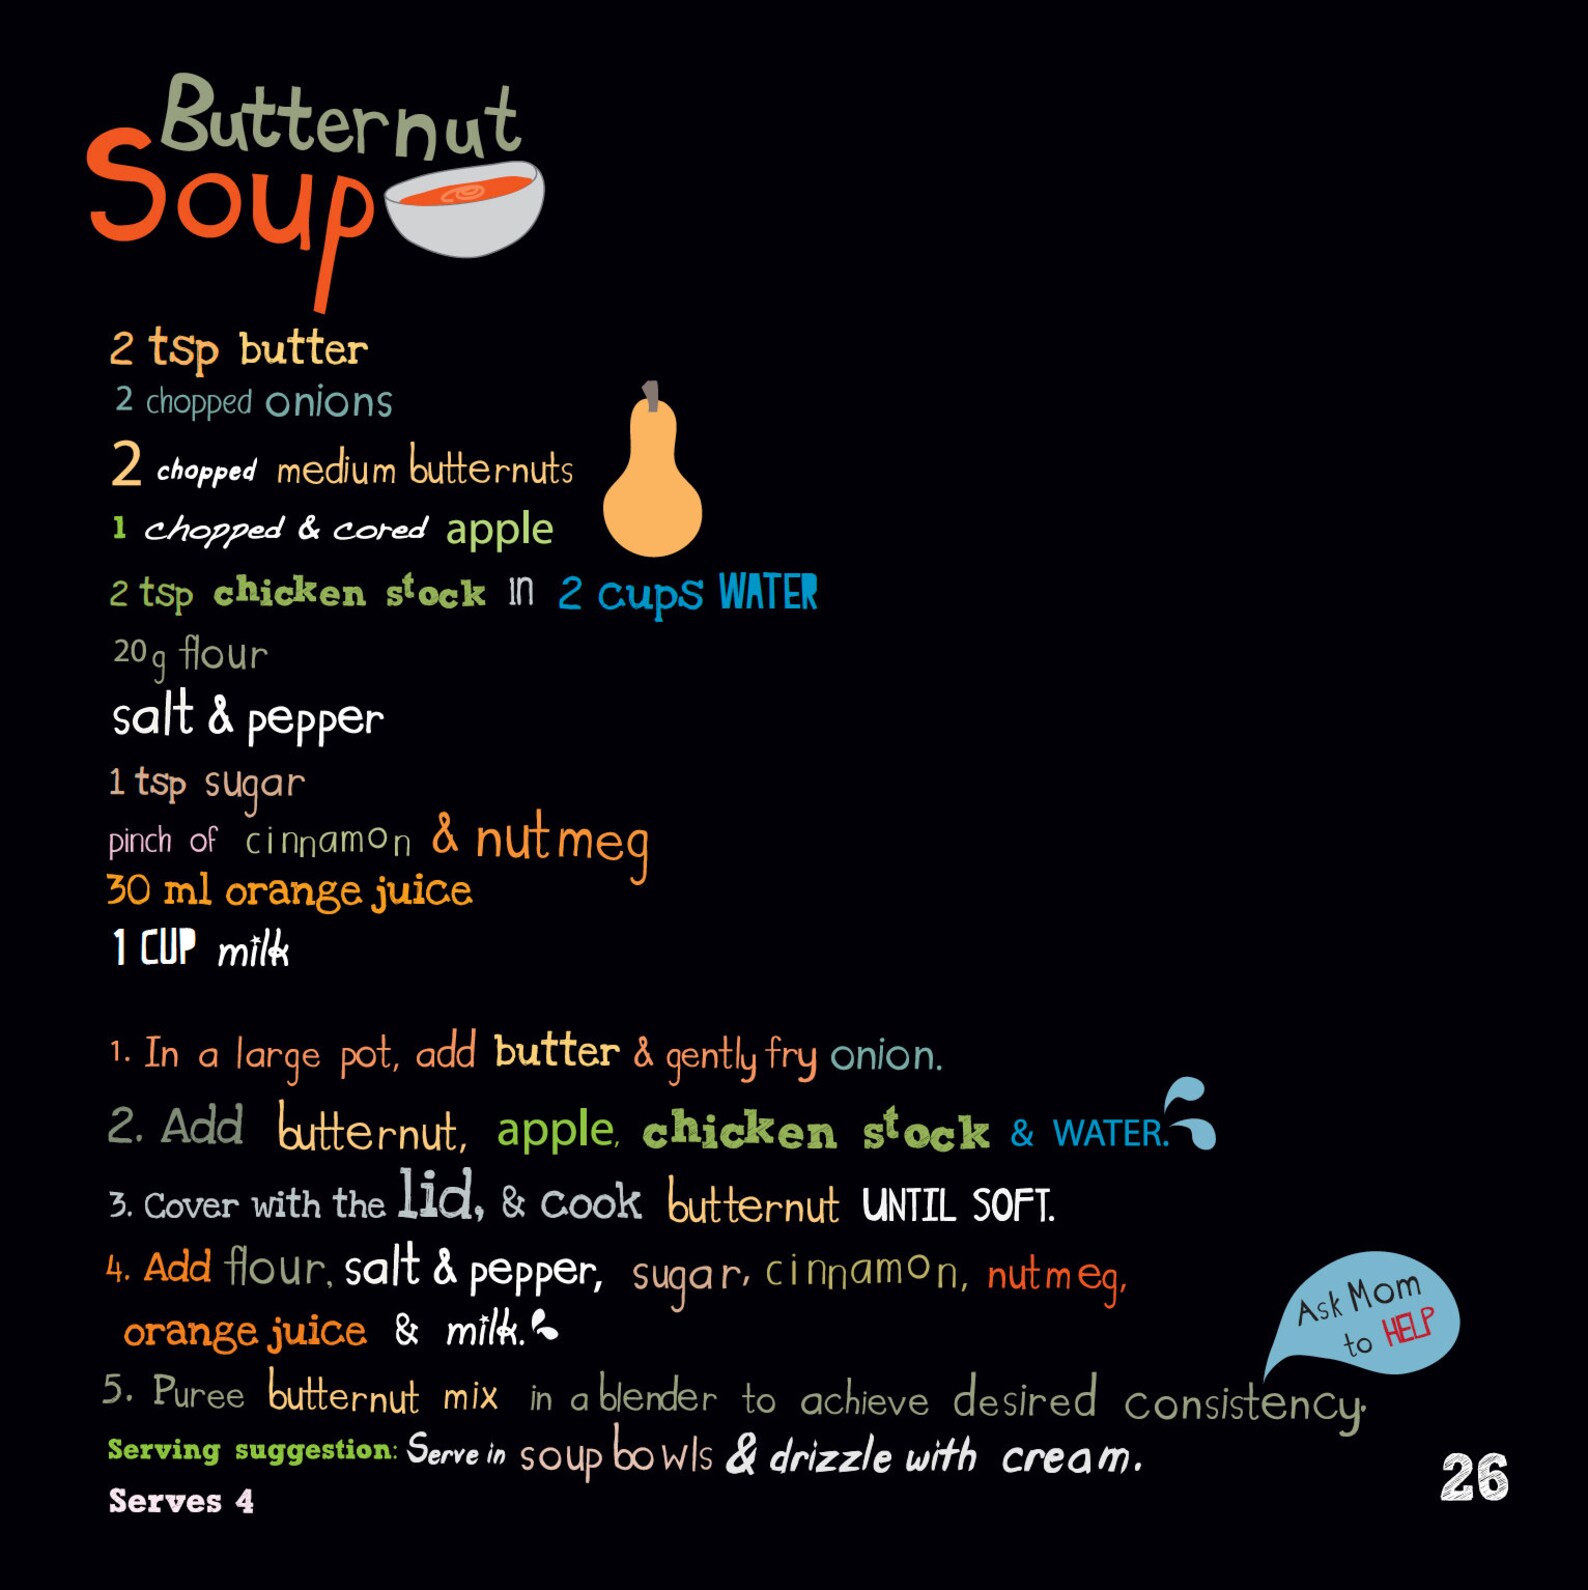 Butternut
Soup
2 tsp butter
2 chopped onions
2 chopped medium butternuts
1 chopped & cored apple
2 tsp chicken stock in 2 cups WATER
20g flour
salt & pepper
1 tsp sugar
pinch of cinnamon & nutmeg
30 ml orange juice
1 CUP milk
1. In a large pot, add butter & gently fry onion.
2. Add butternut, apple, chicken stock & WATER.
3. Cover with the lid, & cook butternut UNTIL SOFT.
4. Add flour, salt & pepper, sugar, cinnamon, nutmeg,
orange juice & milk.
Ask Mom
to HELP
5. Puree butternut mix in a blender to achieve desired consistency.
Serving suggestion: Serve in soup bowls & drizzle with cream.
Serves 4
26